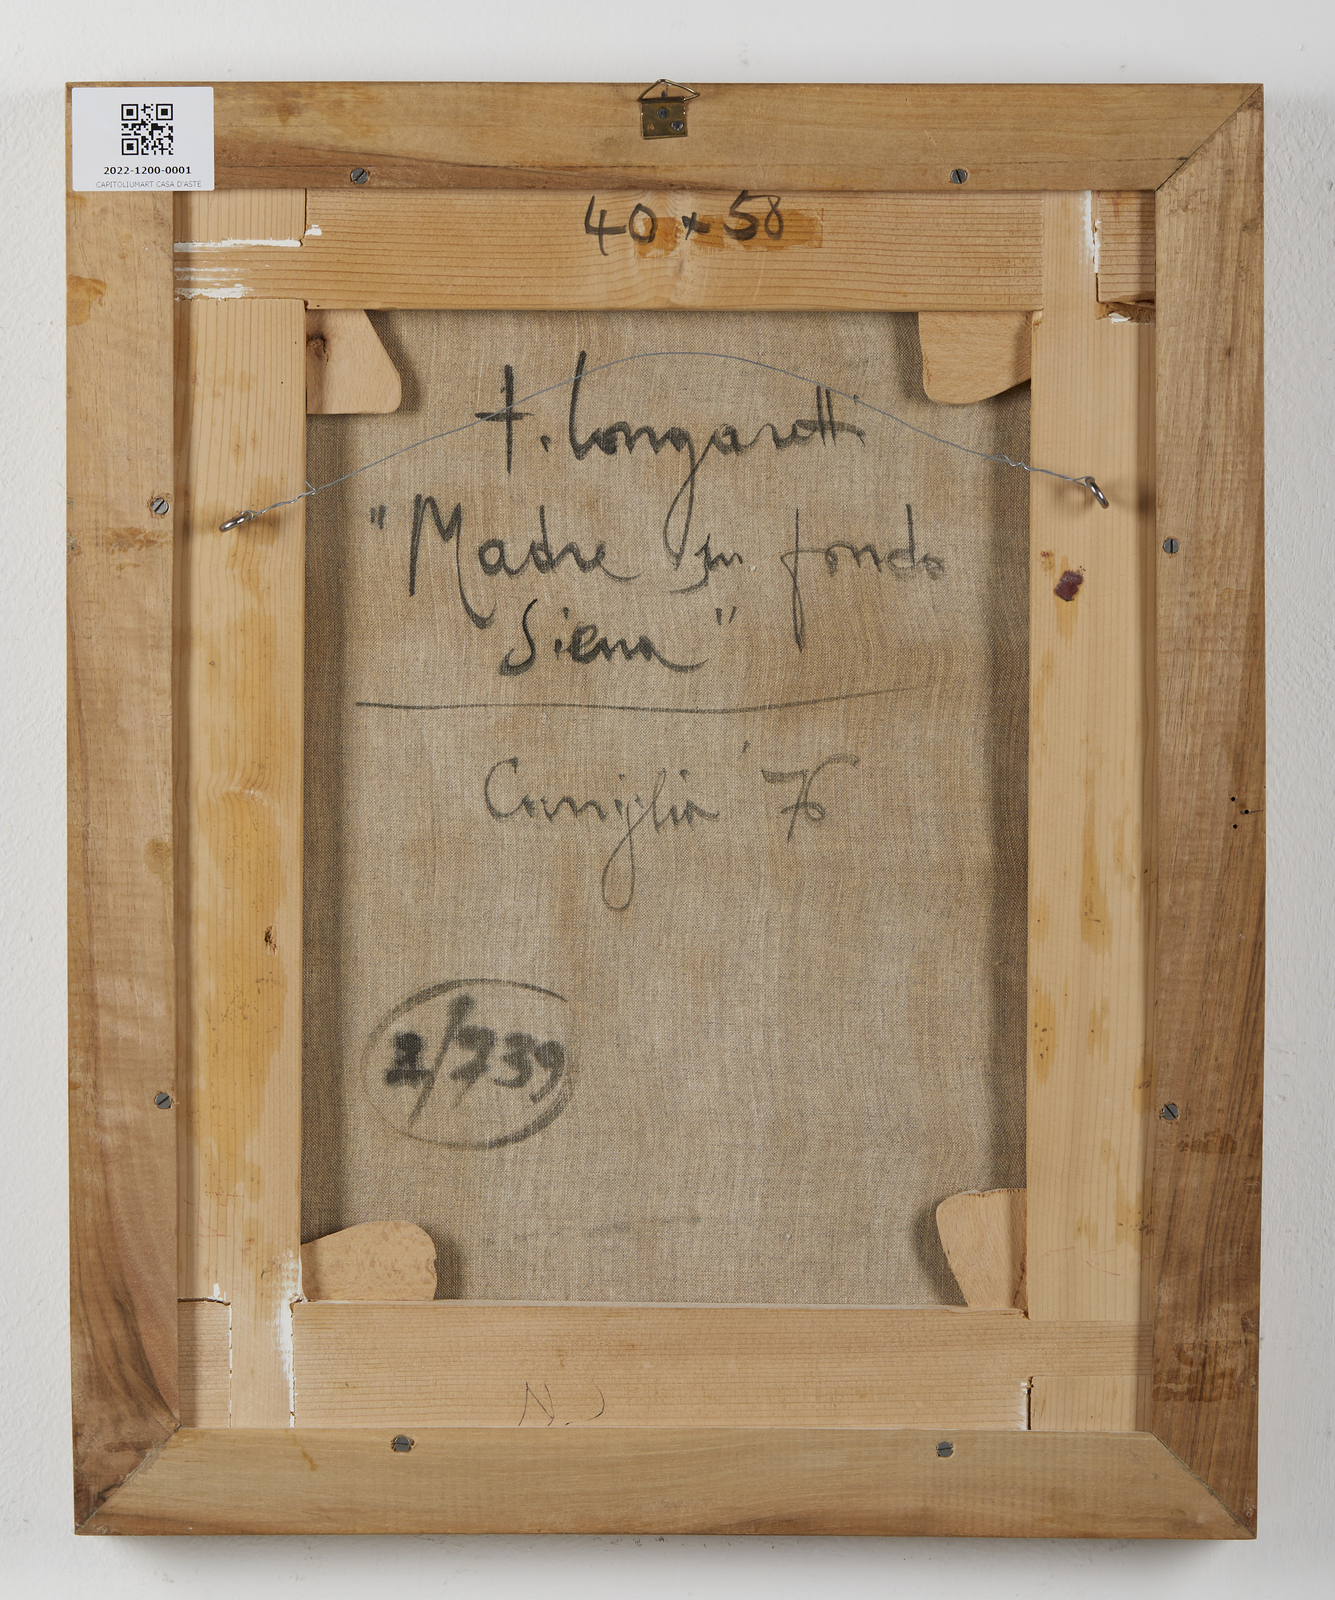 2022-1200-0001
CAPITOLIUMART CASA D'ASTE
40 x 58
t. longaretti
"Madre su fondo
Siena"
'76
2/739
N.